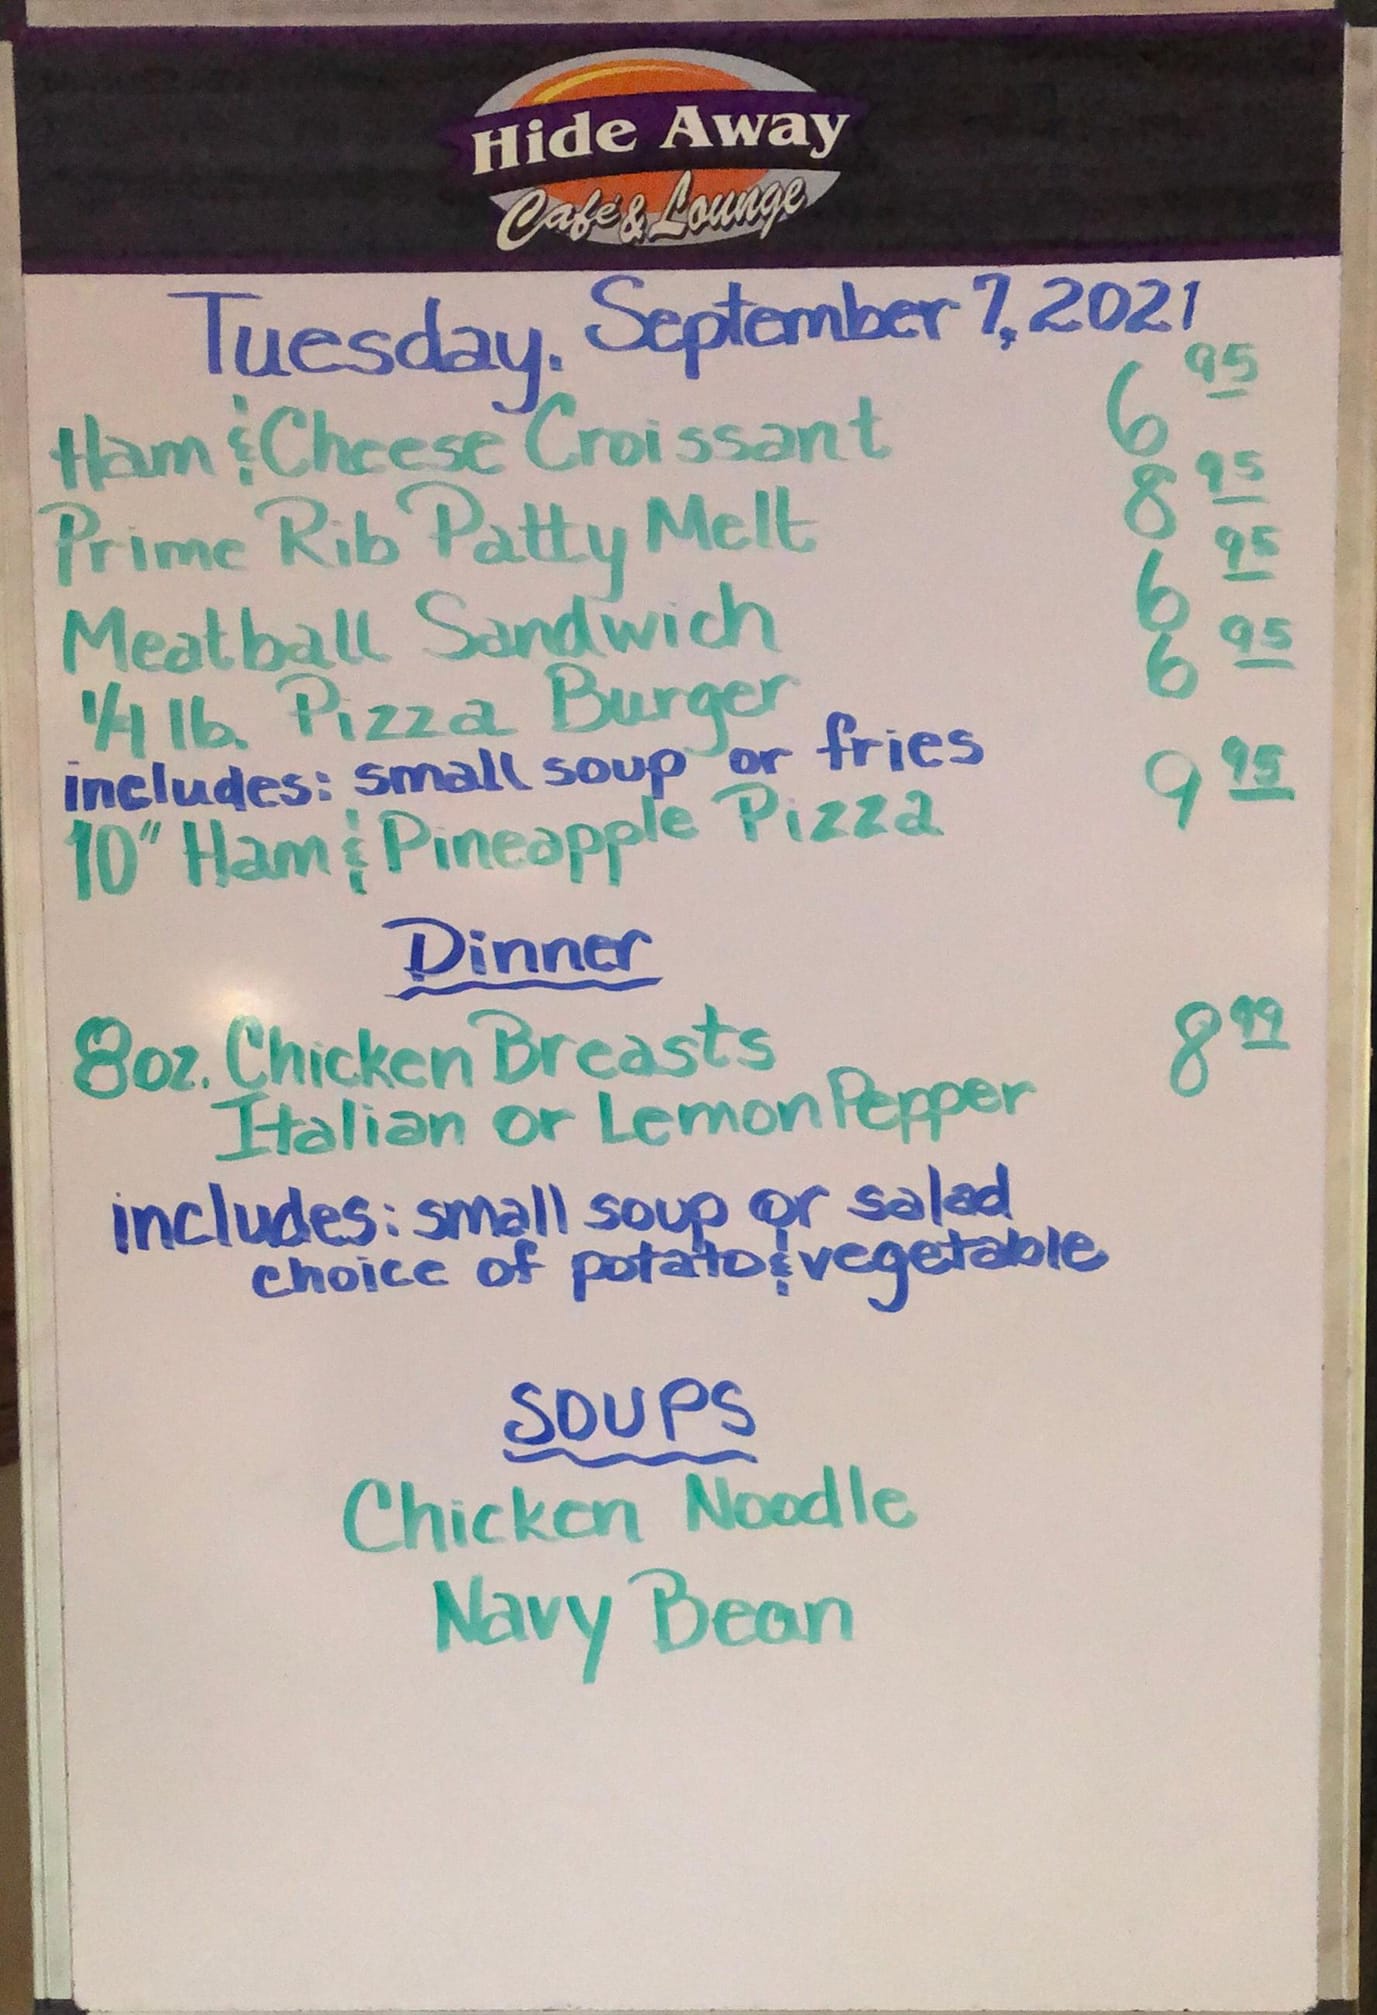 Hide Away
Café & Lounge
Tuesday, September 7, 2021
Ham & Cheese Croissant 6 95
Prime Rib Patty Melt 8 95
Meatball Sandwich 6 95
1/4 lb. Pizza Burger 6 95
includes: small soup or fries
10" Ham & Pineapple Pizza 9 95
Dinner
8oz. Chicken Breasts 8 99
Italian or Lemon Pepper
includes: small soup or salad
choice of potato & vegetable
SOUPS
Chicken Noodle
Navy Bean